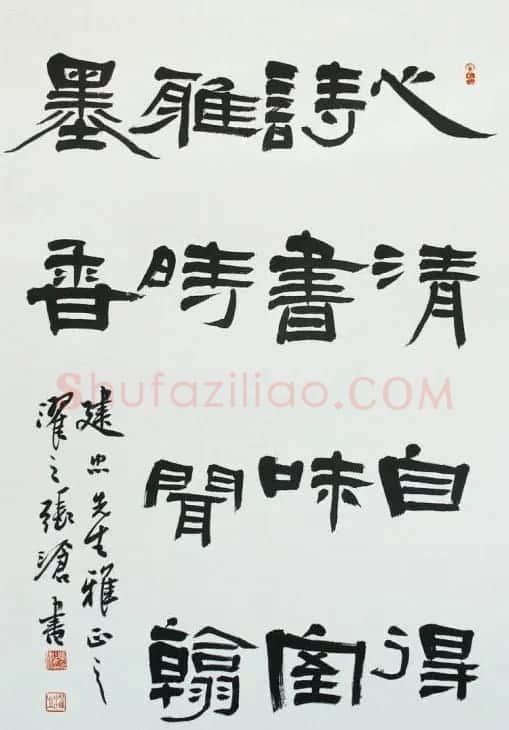 心清自得
詩書味室
雅時聞翰
墨香
建忠先生雅正之
濯之張滄書
Shufaziliao.COM